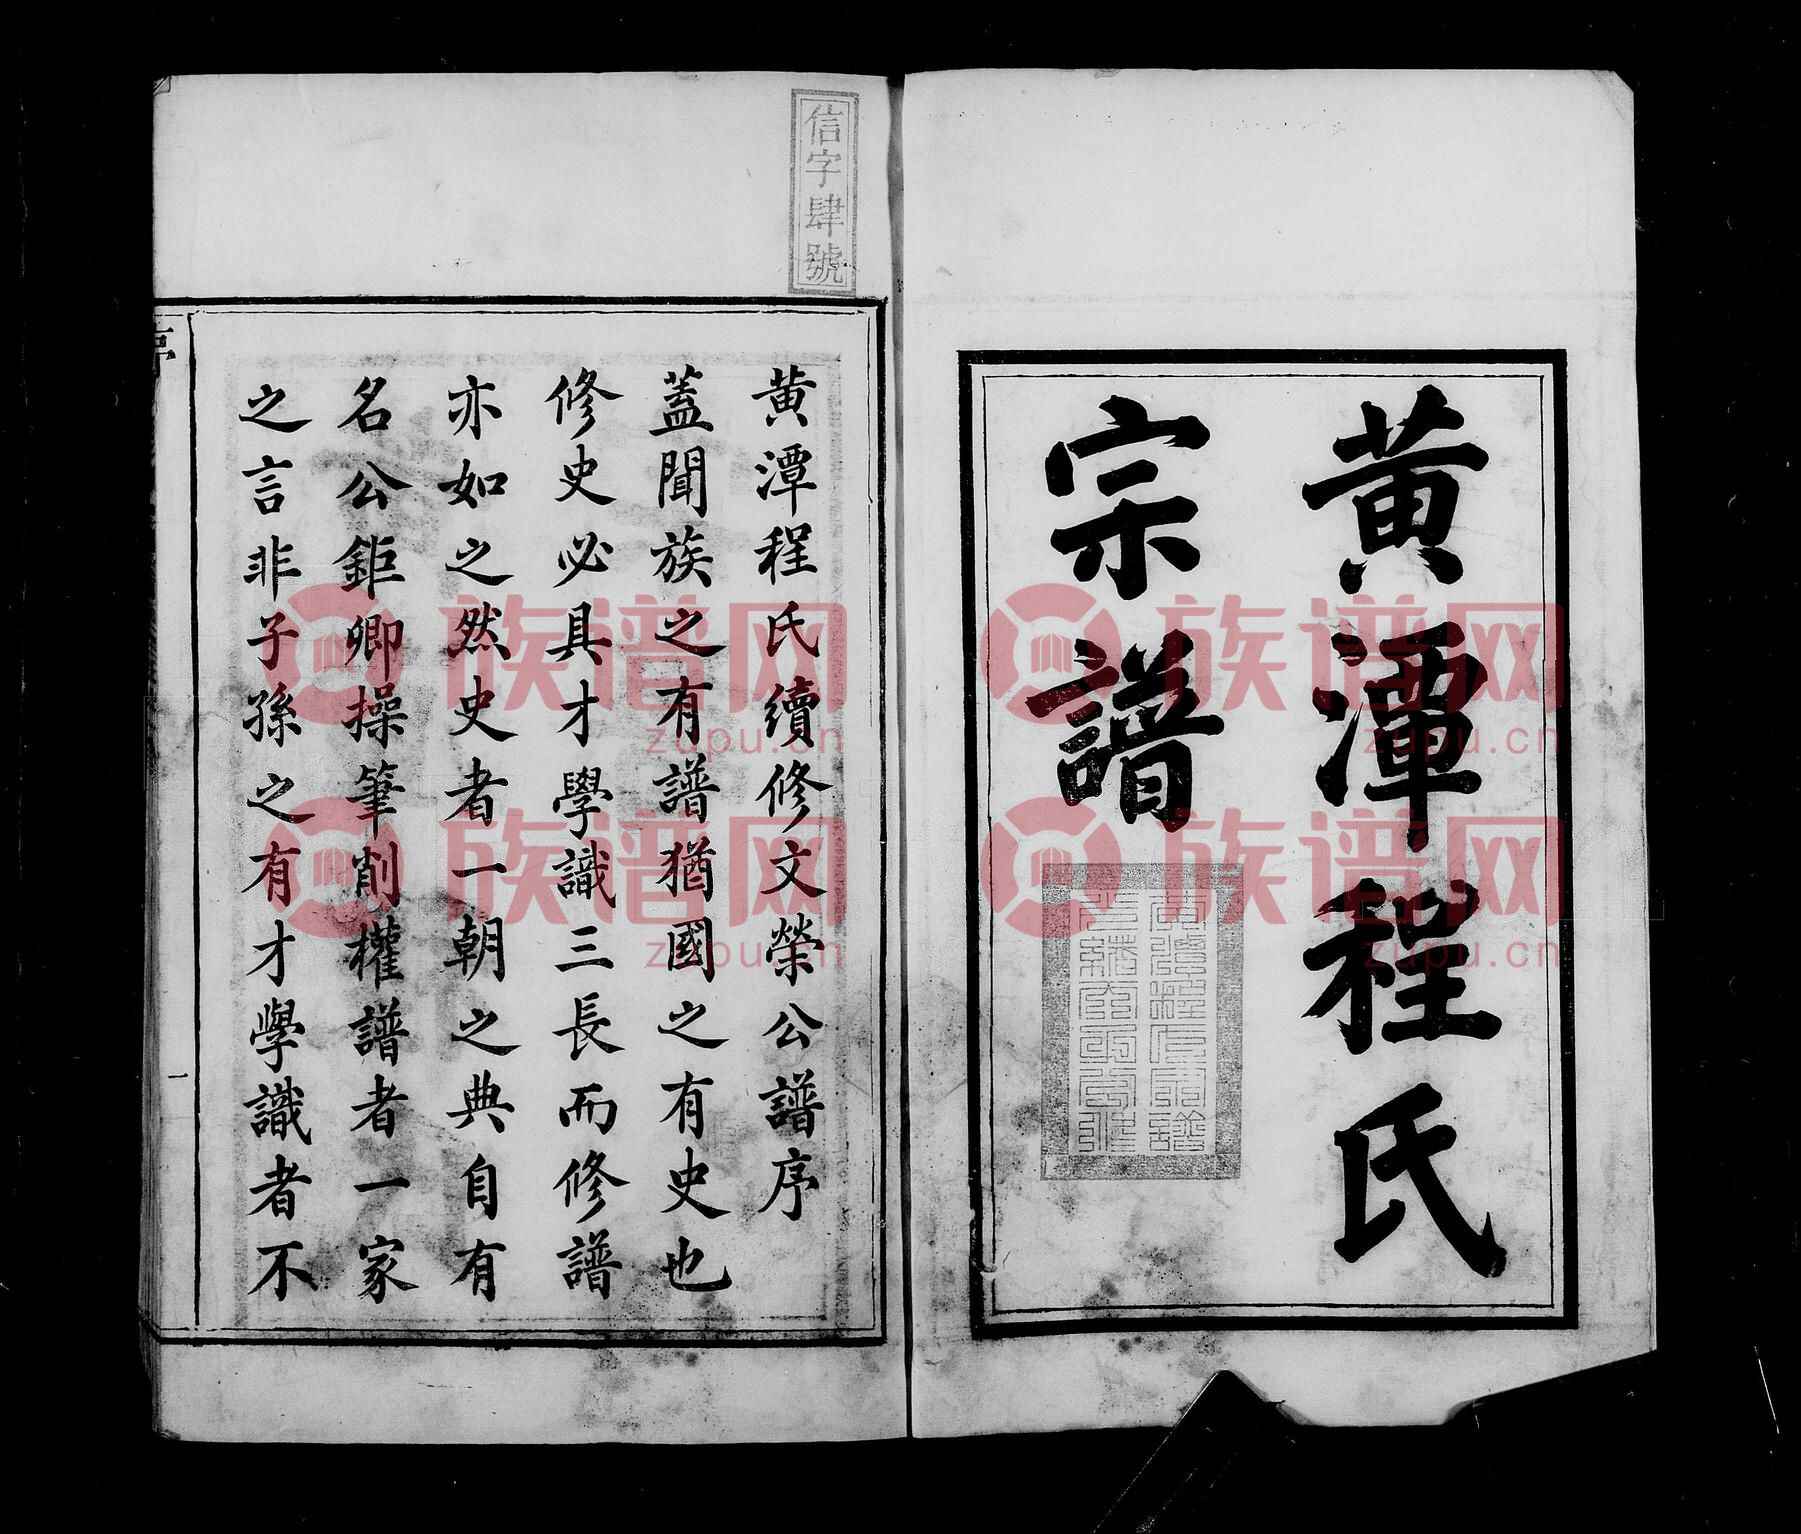 黄潭程氏
宗譜
信字肆號
黄潭程氏續修文榮公譜序
蓋聞族之有譜猶國之有史也
修史必具才學識三長而修譜
亦如之然史者一朝之典自有
名公鉅卿操筆削權譜者一家
之言非子孫之有才學識者不
序
一
族谱网
zupu.cn
族谱网
zupu.cn
族谱网
zupu.cn
族谱网
zupu.cn